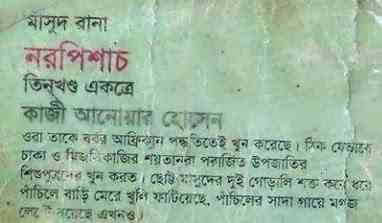 মাসুদ রানা
নরপিশাচ
তিনখণ্ড একত্রে
কাজী আনোয়ার হোসেন
ওরা তাকে বর্বর আফ্রিকান পদ্ধতিতেই খুন করেছে। ঠিক যেভাবে
ঢাকা ও শয়তানরা পরাজিত উপজাতির
শিশুপুত্রদের খুন করত। ছোট্ট মাসুদের দুই গোড়ালি শক্ত করে ধরে
পাঁচিলে বাড়ি মেরে খুলি ফাটিয়েছে, পাঁচিলের সাদা গায়ে মগজ
লেগে রয়েছে এখনও।